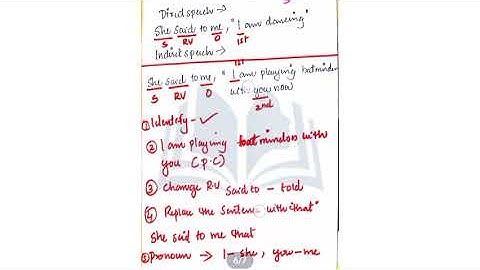 Direct speech →
She said to me, "I am dancing"
S RV O 1st
Indirect speech →
1st
She said to me, "I am playing badminton
S RV O with you now
2nd
① Identify - ✓
② I am playing badminton with
you (P.C)
③ Change RV said to - told
④ Replace the Sentence with "that"
She said to me that
⑤ Pronoun → I - she, you - me